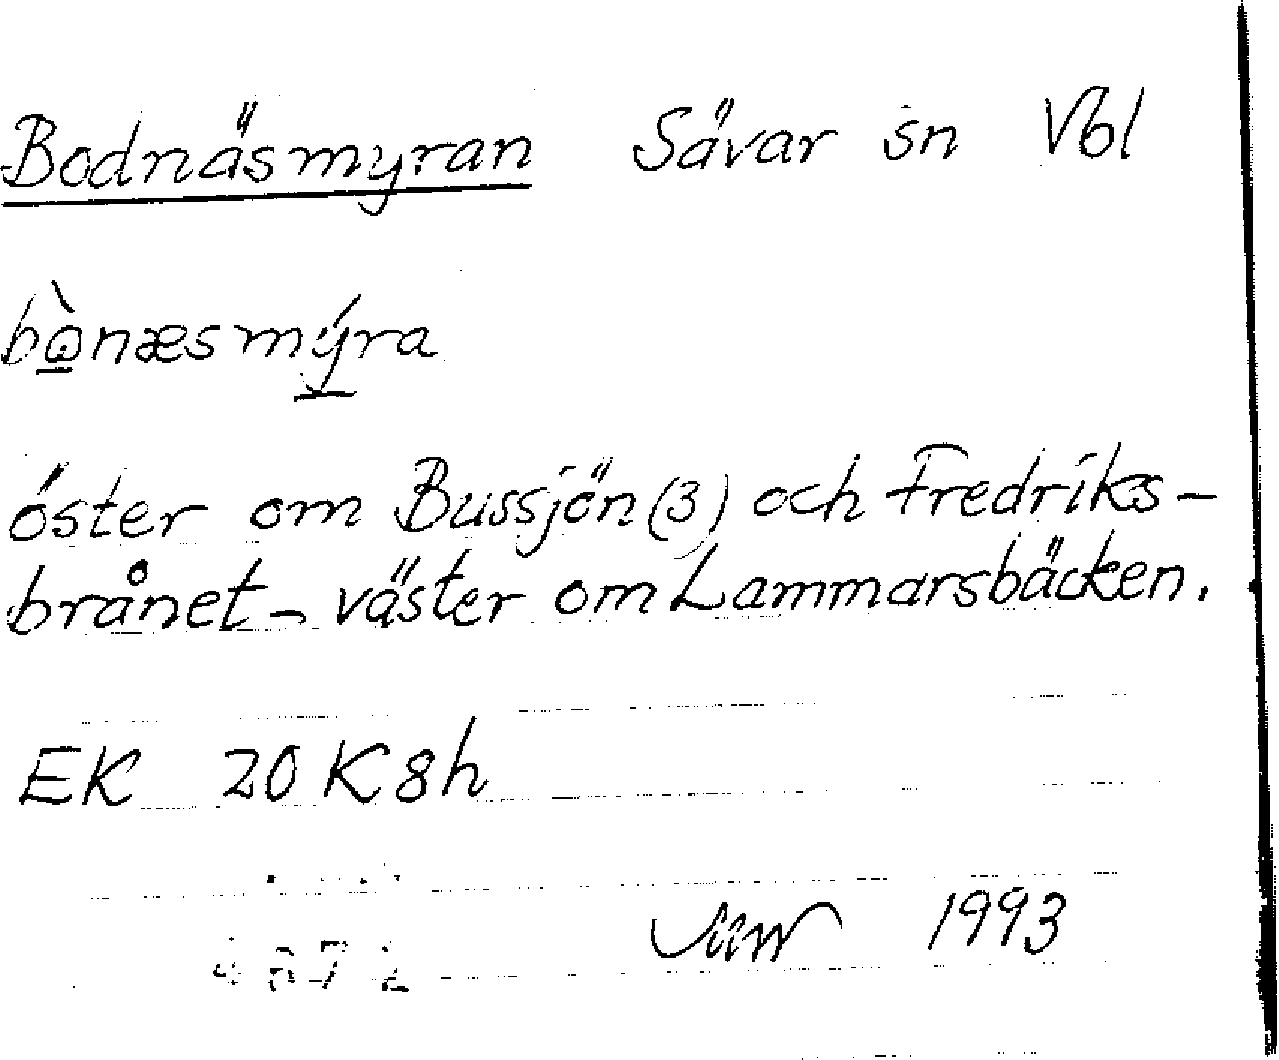 Bodnäsmyran Sävar sn Vbl
bo̱̊̀næsmý̱ra
öster om Bussjön (3) och Fredriks-
brånet - väster om Lammarsbäcken.
EK 20 K 8h
1993